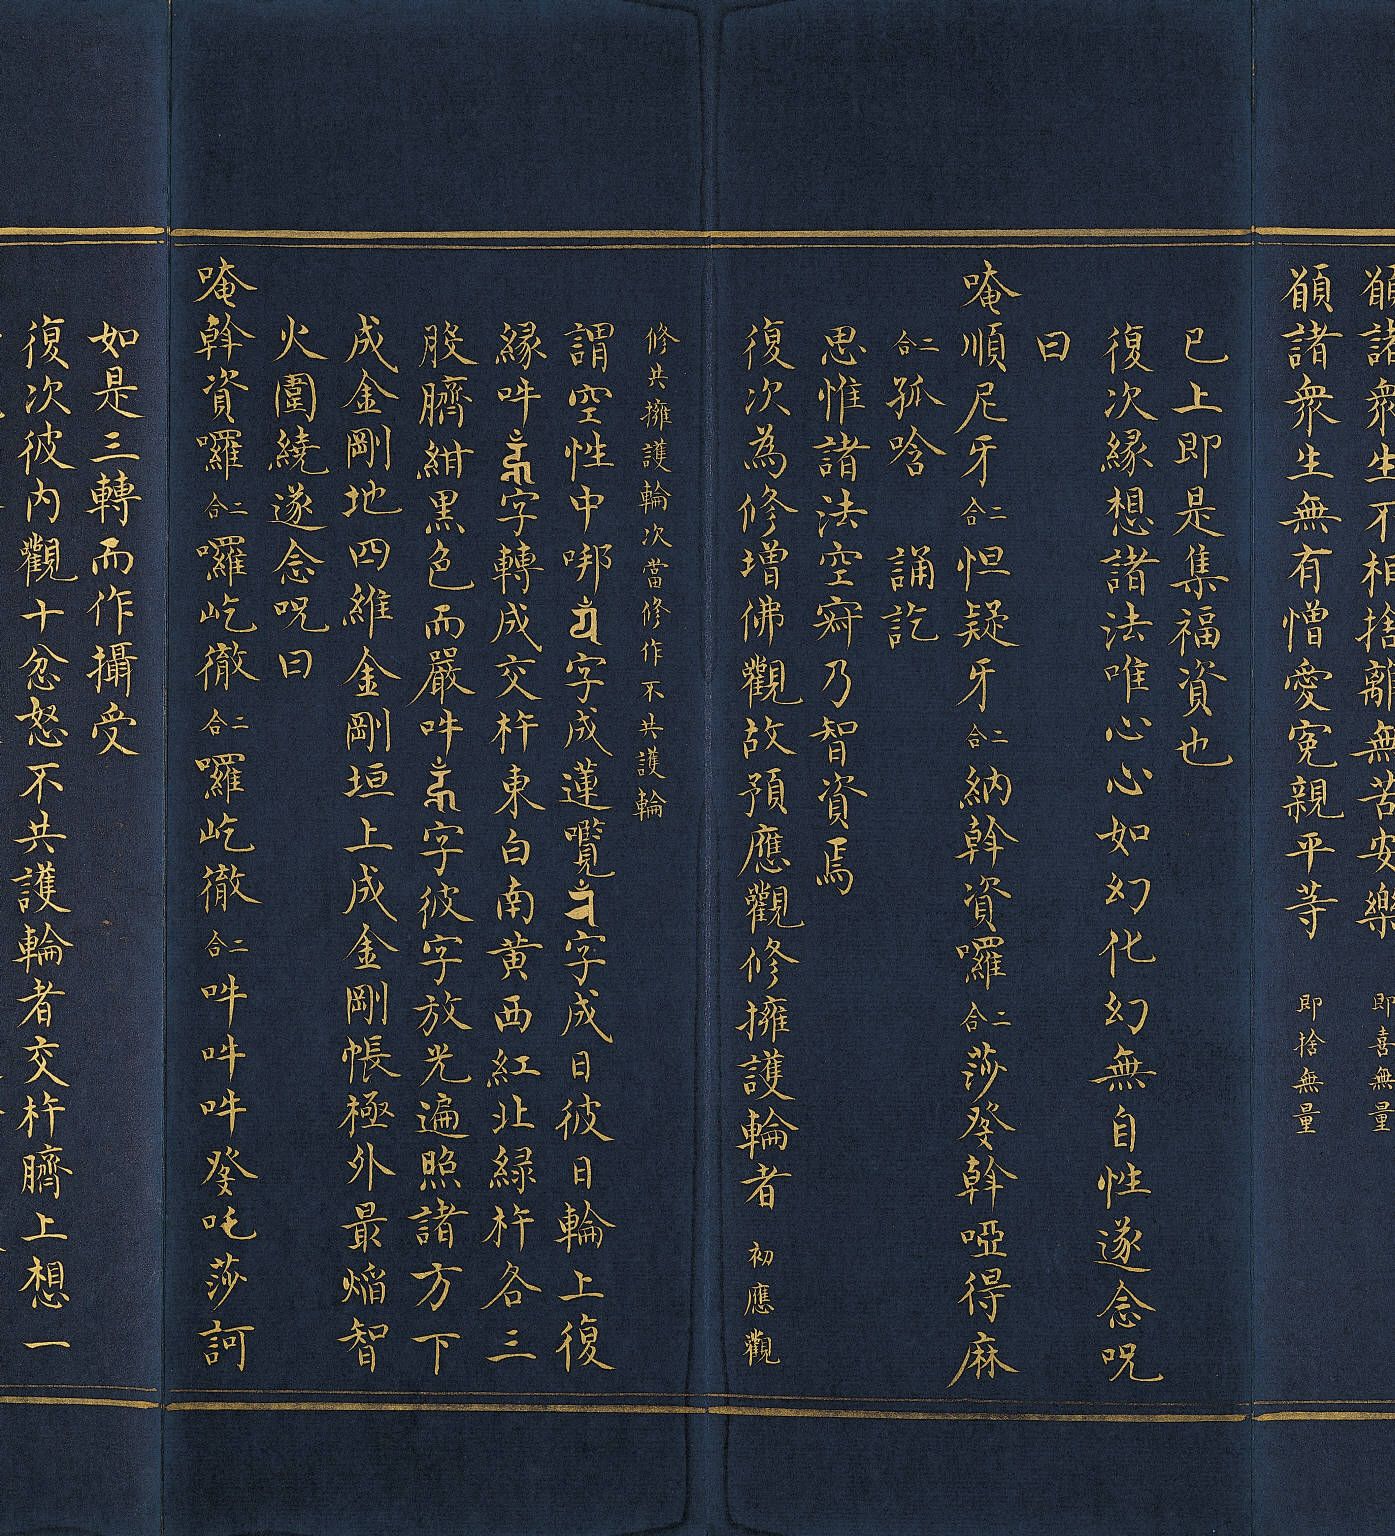 願諸衆生不相捨離無苦安樂 即喜無量
願諸衆生無有憎愛寃親平等 即捨無量
已上即是集福資也
復次緣想諸法唯心心如幻化幻無自性遂念呪
曰
唵順尼牙二合怛疑牙二合納斡資囉二合莎癹斡啞得麻
二合孤唅 誦訖
思惟諸法空寂乃智資焉
復次為修增佛觀故預應觀修擁護輪者 初應觀
修共擁護輪次當修作不共護輪
謂空性中𠶸字成蓮囕字成日彼日輪上復
緣吽字轉成交杵東白南黃西紅北綠杵各三
股臍紺黑色而嚴吽字彼字放光遍照諸方下
成金剛地四維金剛垣上成金剛帳極外最焰智
火圍繞遂念呪曰
唵斡資囉二合囉屹徹二合囉屹徹二合吽吽吽癹吒莎訶
如是三轉而作攝受
復次彼內觀十忿怒不共護輪者交杵臍上想一